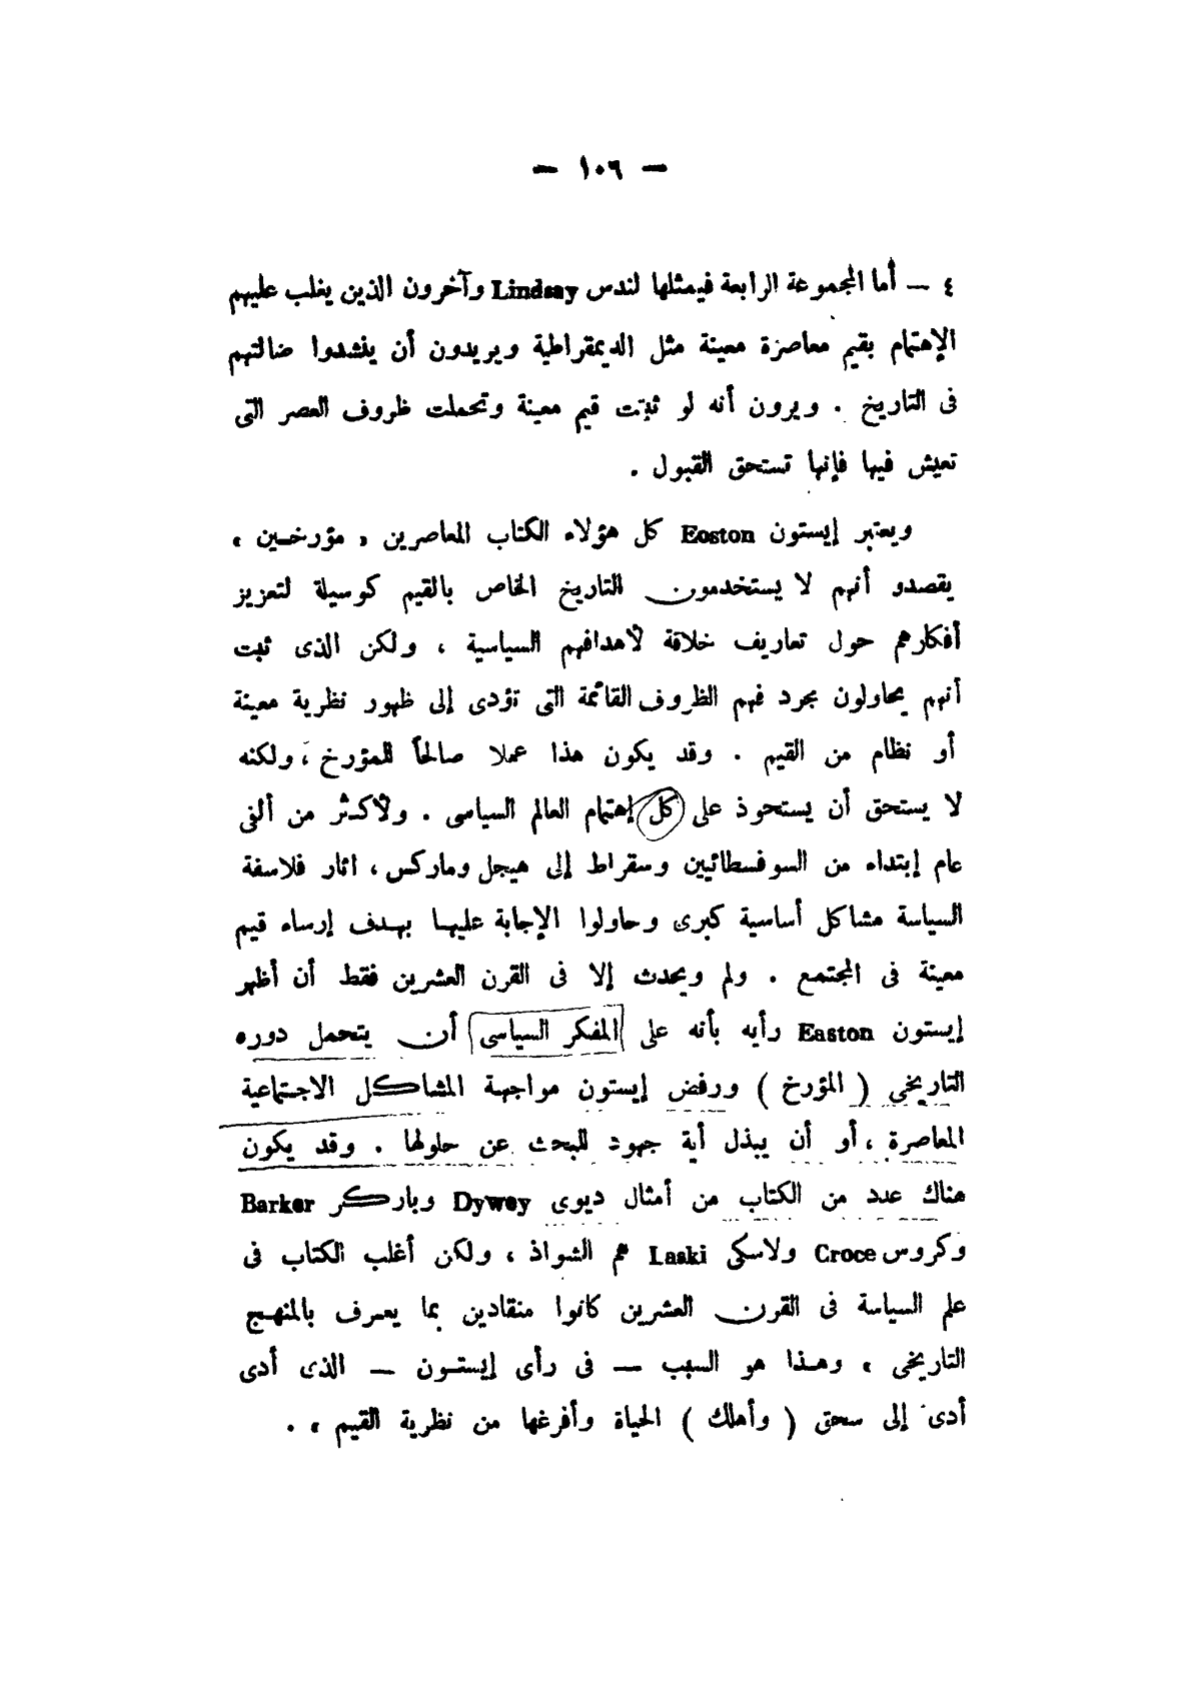 — ١٠٦ —
٤ — أما المجموعة الرابعة فيمثلها لندس Lindsay وآخرون الذين يغلب عليهم
الإهتمام بقيم معاصرة معينة مثل الديمقراطية ويريدون أن ينشدوا ضالتهم
فى التاريخ . ويرون أنه لو ثبتت قيم معينة وتحملت ظروف العصر التى
تعيش فيها فإنها تستحق القبول .
ويعتبر إيستون Eoston كل هؤلاء الكتاب المعاصرين « مؤرخين »
يقصدو أنهم لا يستخدمون التاريخ الخاص بالقيم كوسيلة لتعزيز
أفكارهم حول تعاريف خلاقة لأهدافهم السياسية ، ولكن الذى ثبت
أنهم يحاولون مجرد فهم الظروف القائمة التى تؤدى إلى ظهور نظرية معينة
أو نظام من القيم . وقد يكون هذا عملا صالحاً للمؤرخ ، ولكنه
لا يستحق أن يستحوذ على كل إهتمام العالم السياسى . ولأكثر من ألفى
عام إبتداء من السوفسطائيين وسقراط إلى هيجل وماركس ، اثار فلاسفة
السياسة مشاكل أساسية كبرى وحاولوا الإجابة عليها بهدف إرساء قيم
معينة فى المجتمع . ولم ويحدث إلا فى القرن العشرين فقط أن أظهر
إيستون Easton رأيه بأنه على المفكر السياسى أن يتحمل دوره
التاريخى ( المؤرخ ) ورفض إيستون مواجهة المشاكل الاجتماعية
المعاصرة ، أو أن يبذل أية جهود للبحث عن حلولها . وقد يكون
هناك عدد من الكتاب من أمثال ديوى Dywey وباركر Barker
وكروس Croce ولاسكى Laski هم الشواذ ، ولكن أغلب الكتاب فى
علم السياسة فى القرن العشرين كانوا منقادين بما يعرف بالمنهج
التاريخى ، وهذا هو السبب — فى رأى إيستون — الذى أدى
أدى إلى سحق ( وأهلك ) الحياة وأفرغها من نظرية القيم » .